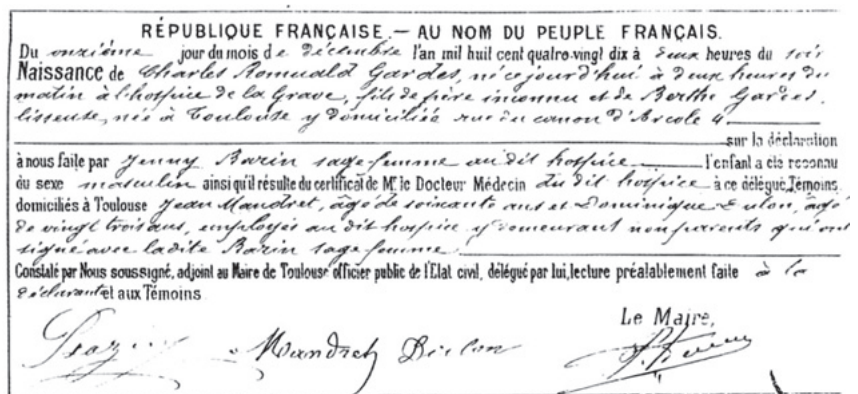 RÉPUBLIQUE FRANÇAISE. — AU NOM DU PEUPLE FRANÇAIS.
Du onzième jour du mois de décembre l'an mil huit cent quatre-vingt dix à deux heures du soir
Naissance de Charles Romuald Gardes, né ce jourd'hui à deux heures du
matin à l'hospice de la Grave, fils de père inconnu et de Berthe Gardes,
lisseuse, née à Toulouse y domiciliée rue du canon d'Arcole 4
sur la déclaration
à nous faite par Jenny Bazin sage-femme au dit hospice l'enfant a été reconnu
du sexe masculin ainsi qu'il résulte du certificat de Mr. le Docteur Médecin du dit hospice à ce délégué, Témoins
domiciliés à Toulouse Jean Mandret, âgé de soixante ans et Dominique Dulon, âgé
de vingt trois ans, employés au dit hospice y demeurant non parents qui ont
signé avec ladite Bazin sage femme
Constaté par Nous soussigné, adjoint au Maire de Toulouse officier public de l'Etat civil, délégué par lui, lecture préalablement faite à la
déclarante et aux Témoins
Le Maire,
Bazin Mandret Dulon